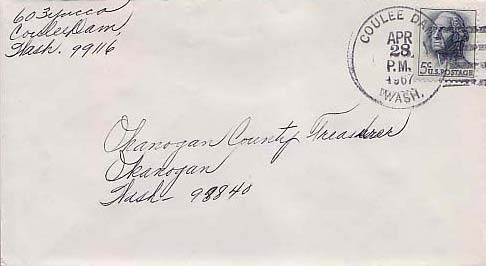 603 Yucca
Coulee Dam,
Wash. 99116
COULEE DAM
APR
28
P.M.
1967
WASH.
5¢
U.S. POSTAGE
Okanogan County Treasurer
Okanogan
Wash - 98840